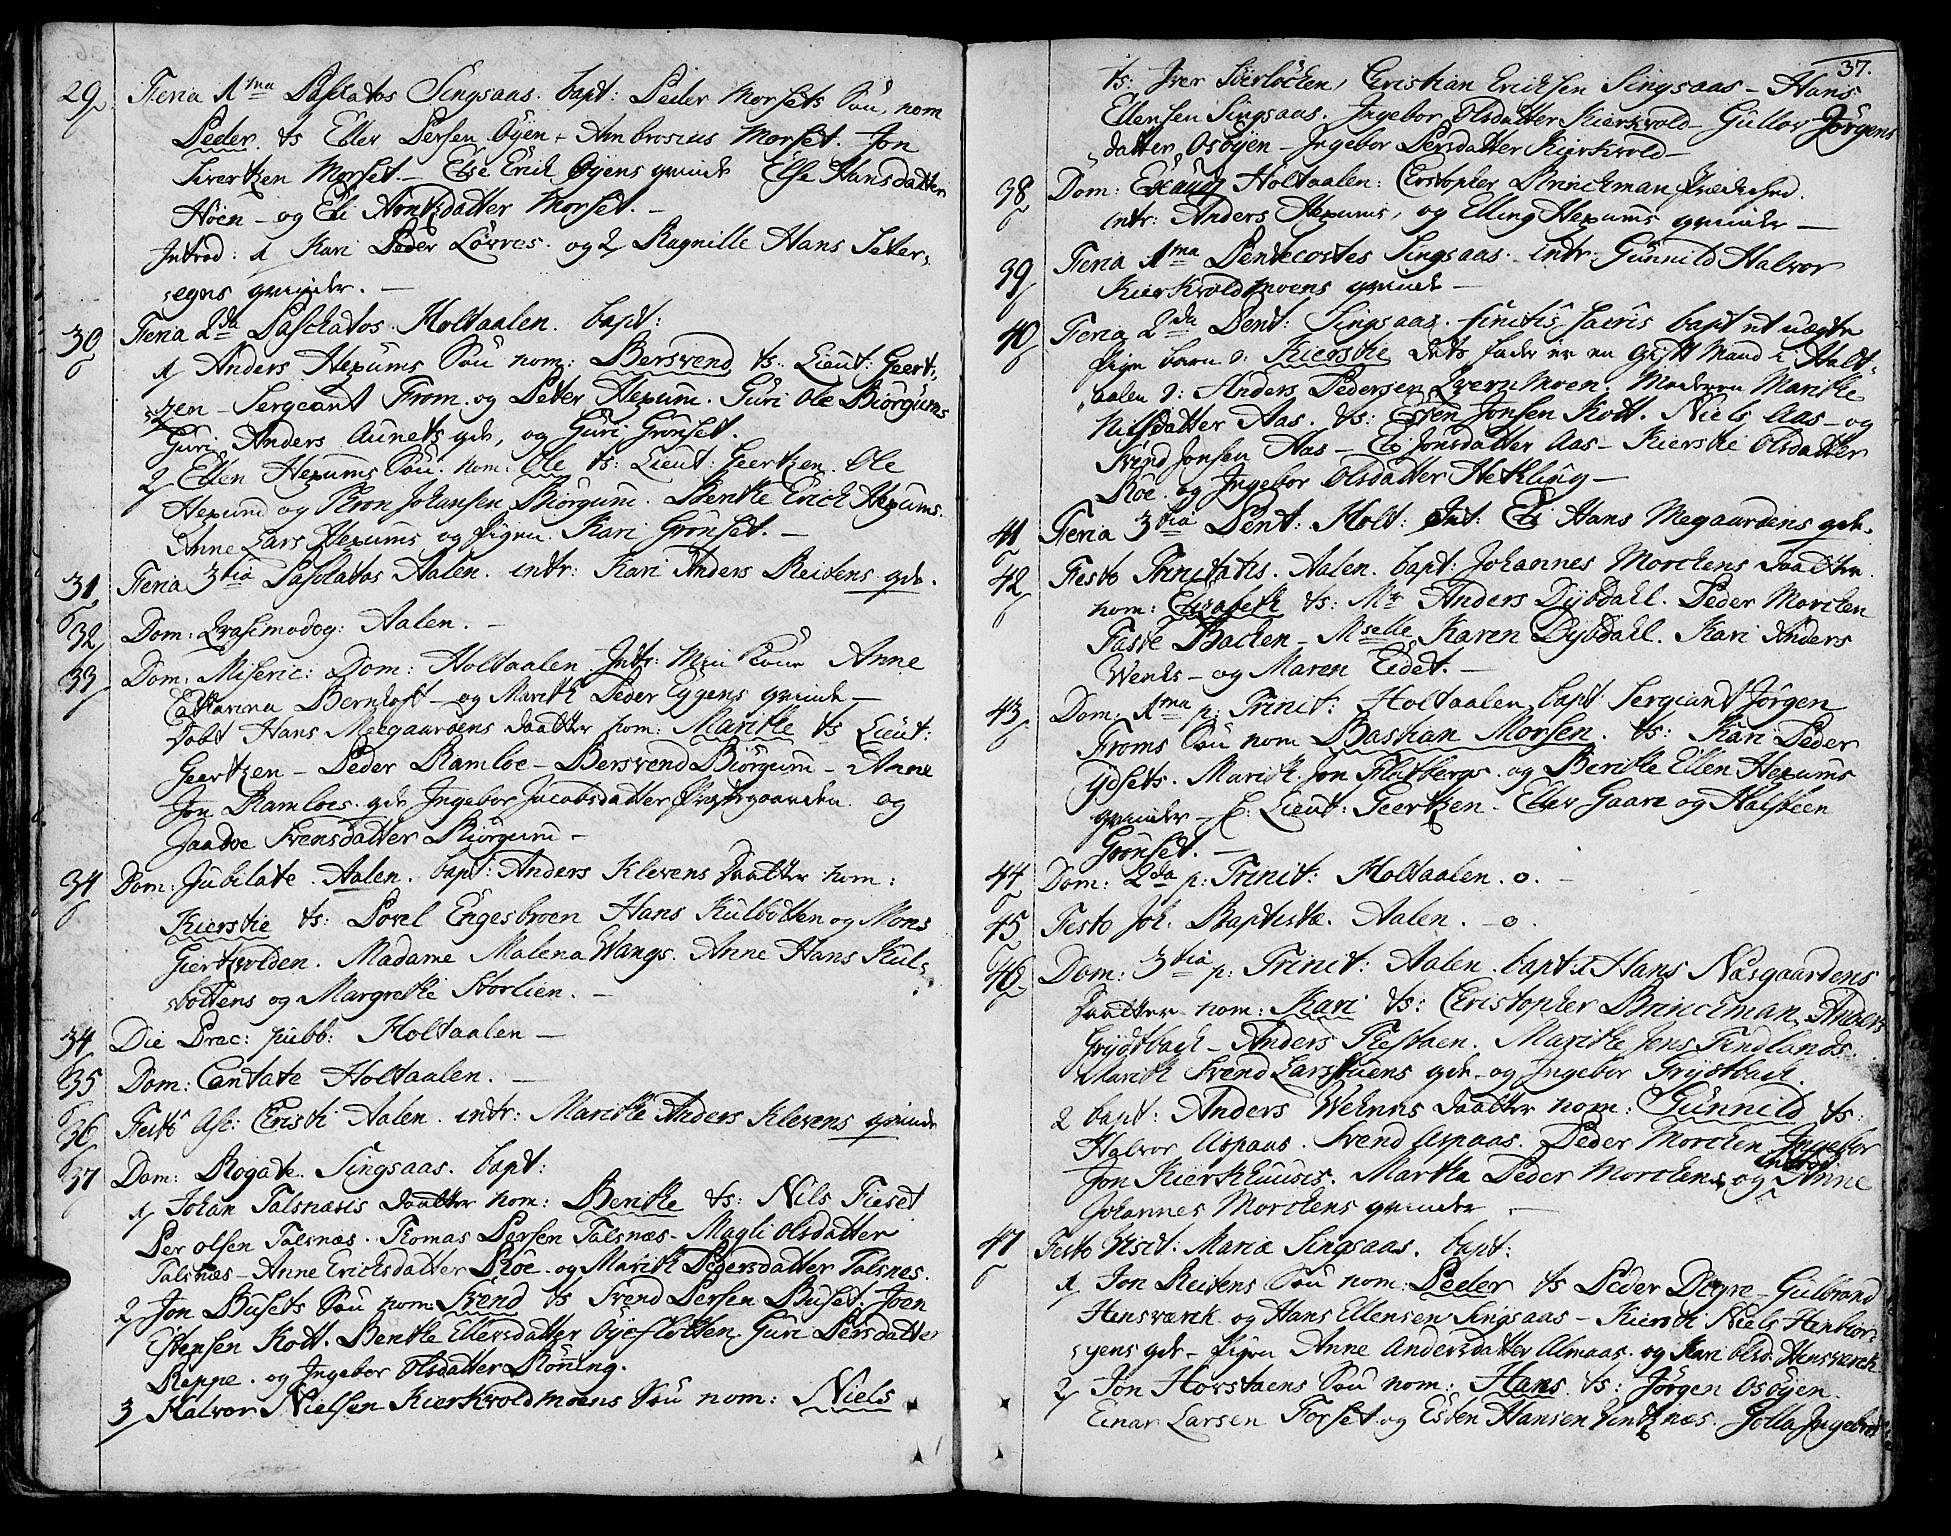 29. Feria 1ma Paschatos Singsaas. bapt: Peder Morsets Søn, nom
Peder. ts Eller Persen Øyen - Ambrosius Morset. Jon
Sivertzen Morset. - Else Erich Øyens qvinde Else Hansdatter
Høen - og Eli Arntzdatter Morset. -
Introd: 1 Kari Peder Lörres. og 2 Ragnille Hans Seter-
egns qvinder. -
30 Feria 2da Paschatos. Holtaalen. bapt:
1 Anders Hexums Søn nom: Bersvend ts: Lieut: Geert-
zen - Sergeant From. og Peter Hexum. Guri Ole Biörgums
Guri Anders Aunets qde, og Guri Grönset.
2 Ellen Hexums Søn. nom: Ole ts: Lieut: Geertzen. Ole
Hexum og Bron Johansen Biörgum. Benthe Erich Hexums.
Anne Lars Hexums og Pigen Kari Grönset. -
31 Feria 3tia Paschatos Aalen. intr: Kari Anders Reitens qde.
32 Dom: Qvasimodog: Aalen. -
33 Dom: Miseric: Dom: Holtaalen Intr: Min Kone Anne
Catharina Bernhoft - og Marith Peder Eggens qvinde -
Døbt Hans Meegaardens Daatter nom: Marithe ts Lieut:
Geertzen - Peder Ramloe - Bersvend Biörgum - Anne
Jon Ramloes qde Ingebor Jacobsdatter Præstegaarden og
Jaadve Svensdatter Biörgum -
34 Dom: Jubilate. Aalen. bapt: Anders Klevens Daatter nom:
Kierstie ts: Povel Engesbroen Hans Kulbotten og Mons
Giertzvolden. Madame Malena Wangs. Anne Hans Kul-
bottens og Margrethe Storlien. -
34 Die Prec: publ: Holtaalen -
35 Dom: Cantate Holtaalen. -
36 Festo Asc: Christi Aalen. intr: Marithe Anders Klevens qvinde
37 Dom: Rogate. Singsaas. bapt:
1 Johan Talsnæsis Daatter nom: Benthe ts: Nils Fieset
Per Olsen Talsnæs. Thomas Persen Talsnæs - Magli Olsdatter
Talsnæs - Anne Erichsdatter Roe. og Marith Pedersdatter Talsnes.
2 Jon Busets Søn nom: Svend ts Svend Persen Buset, Joen
Estensen Kott. Benthe Ellersdatter Øyeslotten. Guri Persdatter
Reppe. og Ingebor Olsdatter Röning.
3 Halvor Nielsen Kierkvoldmoens Søn nom: Niels
37.
ts: Iver Siirløcken, Christian Erichsen Singsaas - Hans
Ellensen Singsaas. Ingebor Olsdatter Kierkvold - Gullov Jörgens
datter Osøyen - Ingebor Persdatter Kierkvold -
38 Dom: Exaudi Holtaalen: Christopher Brinckman Prædiched.
intr: Anders Hexums, og Elling Hexums qvinder -
39 Feria 1ma Pentecostes Singsaas. intr: Gunnild Halvor
Kierkvoldmoens qvinde -
40 Feria 2da Pent: Singsaas. finitis sacris bapt et uægte
Pige barn n: Kierstie dets fader er en Gift Mand i Holt-
aalen n: Anders Pedersen Qvernmoen. Moderen Marithe
Nilsdatter Aas. ts: Esten Jonsen Kott. Niels Aas - og
Svend Jonsen Aas - Eli Jonsdatter Aas - Kierstie Olsdatter
Roe. og Ingebor Olsdatter Hetling -
41 Feria 3tia Pent: Holt: Int: Eli Hans Megaardens qde.
42 Festo Trinitatis. Aalen. bapt: Johannes Morchens Daatter
nom: Elisabeth ts: Mr Anders Dybdahl. Peder Morchen
Faste Bachen - Mselle Karen Dybdahl. Kari Anders
Wents - og Maren Eidet. -
43 Dom: 1ma p: Trinit: Holtaalen bapt Sergiant Jörgen
Froms Søn nom Bastian Morsen. ts: Kari Peder
Ydsets. Marith Jon Flatbergs. og Berithe Ellen Hexums
qvinder - E: Lieut: Geertzen - Eller Gaare og Halsteen
Grönset. -
44 Dom: 2da p: Trinit: Holtaalen. o. -
45 Festo Joh: Baptistæ. Aalen. - o.
46 Dom: 3tia p: Trinit: Aalen. bapt: 1 Hans Næsgaardens
Daatter nom: Kari ts: Christopher Brinckman, Anders
Grydtbach - Anders Flestaen. Marithe Jens Findlands.
Marith Svend Larstuens qde - og Ingebor Grydtbach.
2 bapt: Anders Wehnns Daatter nom: Gunnild ts:
Halvor Aspaas. Svend Aspaas. Peder Morchen Ingebor
Jon Kierkhuusis. Martha Peder Morchens, og introd: Anne
Johannes Morchens qvinder -
47 Festo Visit: Mariæ Singsaas. bapt:
1 Jon Reitens Søn nom Peder ts Peder Digre - Gulbrand
Hensværck og Hans Ellensen Singsaas - Kiersti Niels Henbior-
gens qde - Pigen Anne Andersdatter Almaas. og Kari Olsd. Hensværck
2 Jon Horstaens Søn nom: Hans. ts: Jörgen Osøyen.
Einar Larsen Forset og Esten Hansen Fintznæs. Jolla Ingebret